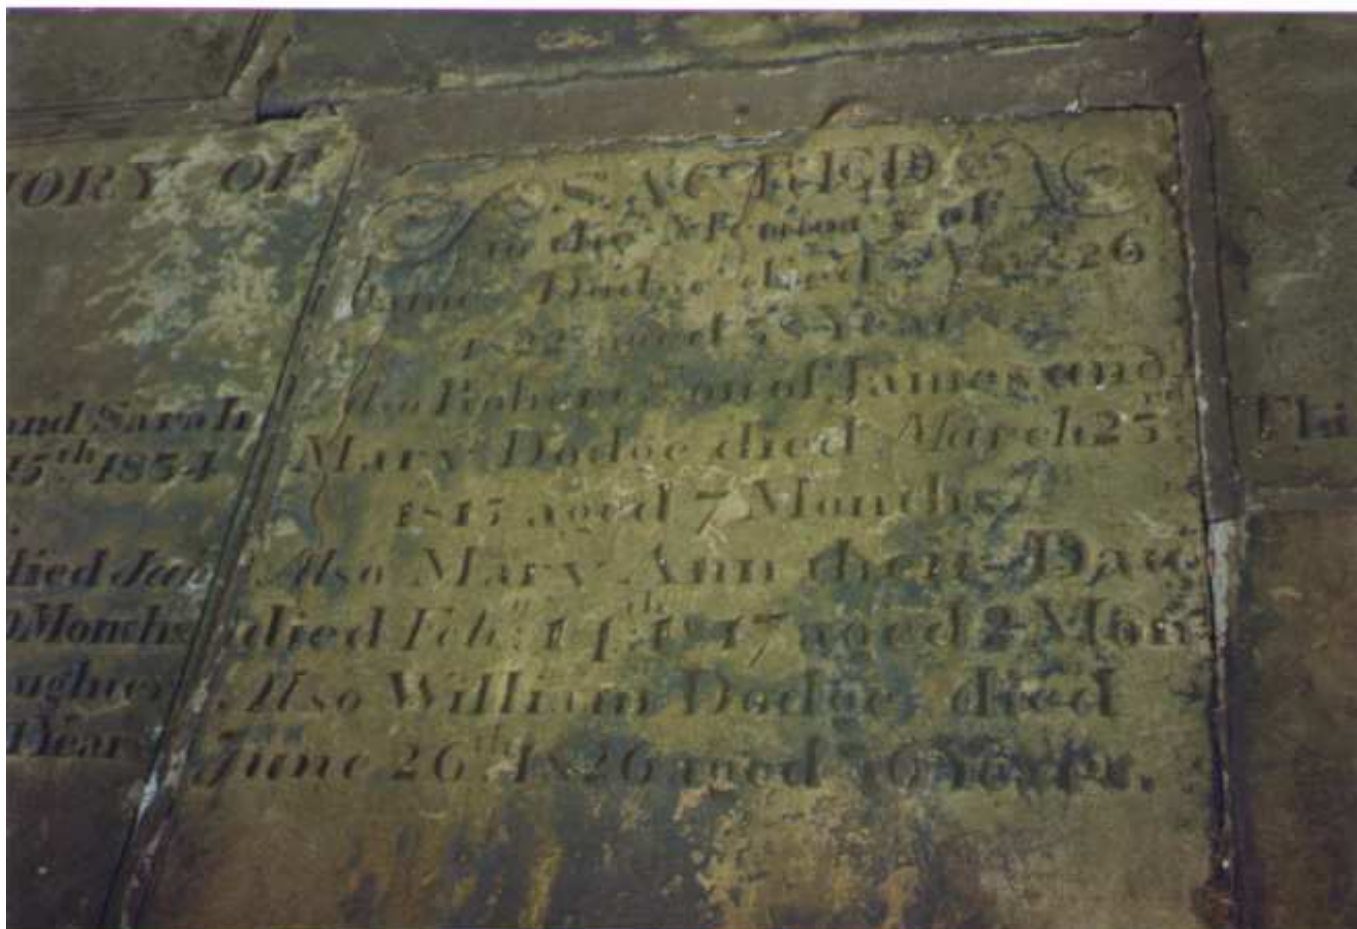 ORY OF
and Sarah
15th 1834
died Jan
Months
aughter
Year
SACRED
to the Memory of
James Dodge died 26
1822 aged Years
Also Robert Son of James and
Mary Dodge died March 25
1815 aged 7 Months
Also Mary Ann their Daug
died Feb 14th 1817 aged 2 Mon
Also William Dodge died
June 26th 1826 aged Years.
Thi